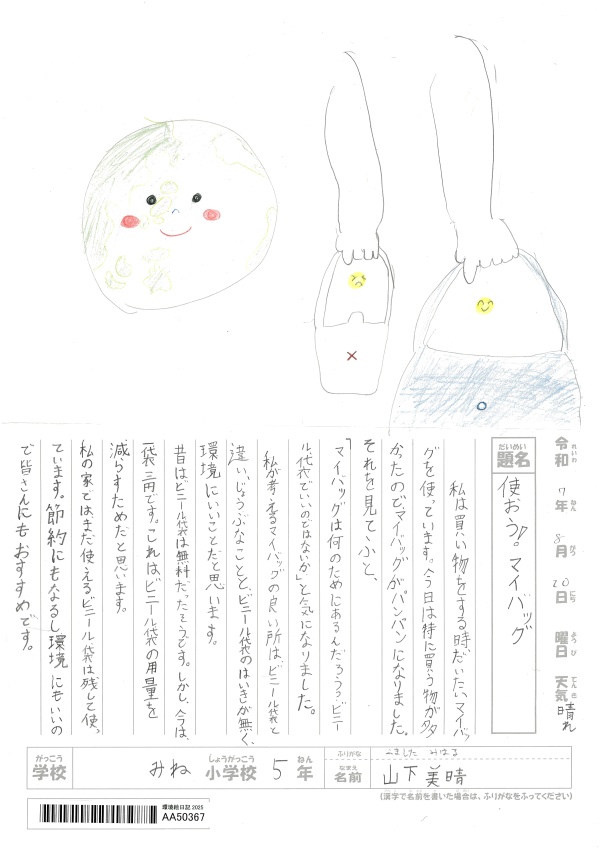 令和 7年 8月 20日 曜日 天気 晴れ
題名 使おう!!マイバッグ
私は買い物をする時だいたいマイバッ
グを使っています。今日は特に買う物が多
かったのでマイバッグがパンパンになりました。
それを見てふと、
「マイバッグは何のためにあるんだろう?ビニー
ル代袋でいいのではないか」と気になりました。
私が考えるマイバッグの良い所はビニール袋と
違い、じょうぶなこととビニール袋のはいきが無く、
環境にいいことだと思います。
昔はビニール袋は無料だったそうです。しかし、今は、
一袋三円です。これはビニール袋の用量を
減らすためだと思います。
私の家ではまだ使えるビニール袋は残して使っ
ています。節約にもなるし環境にもいいの
で皆さんにもおすすめです。
がっこう 学校 みね しょうがっこう 小学校 5 ねん 年
ふりがな やました みはる
なまえ 名前 山下 美晴
(漢字で名前を書いた場合は、ふりがなをふってください)
環境絵日記 2025
AA50367